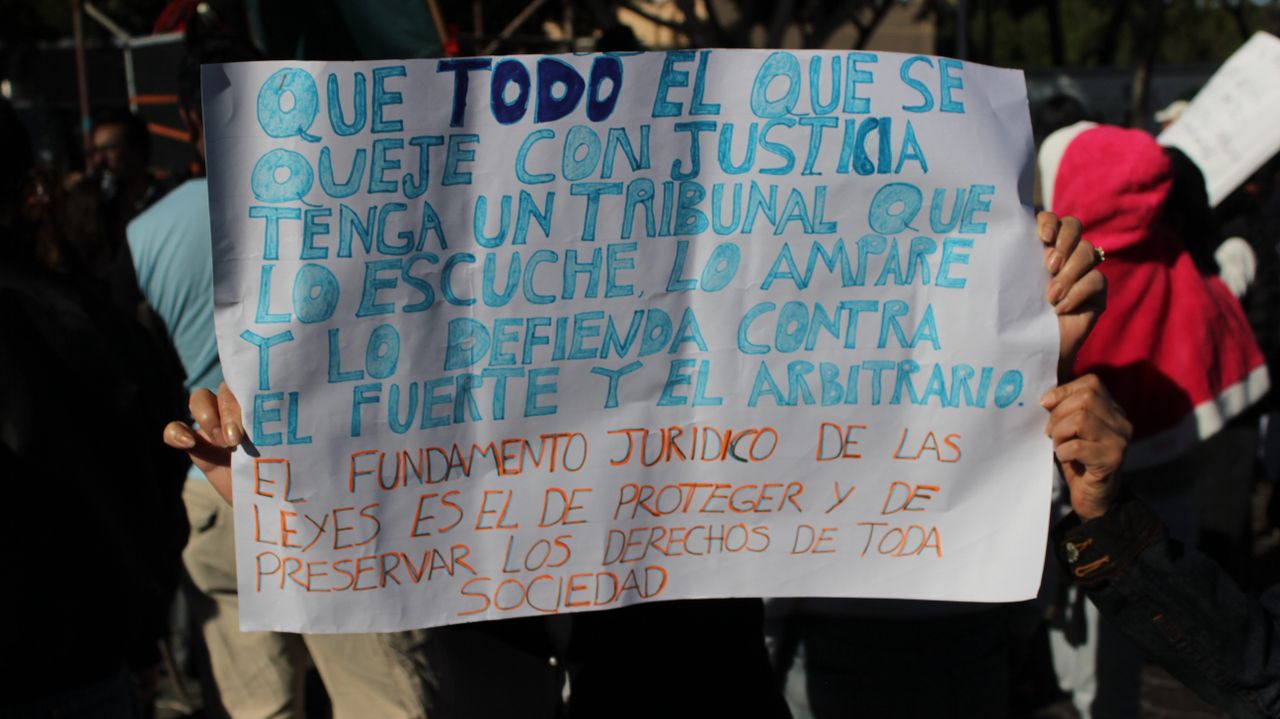 QUE TODO EL QUE SE
QUEJE CON JUSTICIA
TENGA UN TRIBUNAL QUE
LO ESCUCHE, LO AMPARE
Y LO DEFIENDA CONTRA
EL FUERTE Y EL ARBITRARIO.
EL FUNDAMENTO JURIDICO DE LAS
LEYES ES EL DE PROTEGER Y DE
PRESERVAR LOS DERECHOS DE TODA
SOCIEDAD